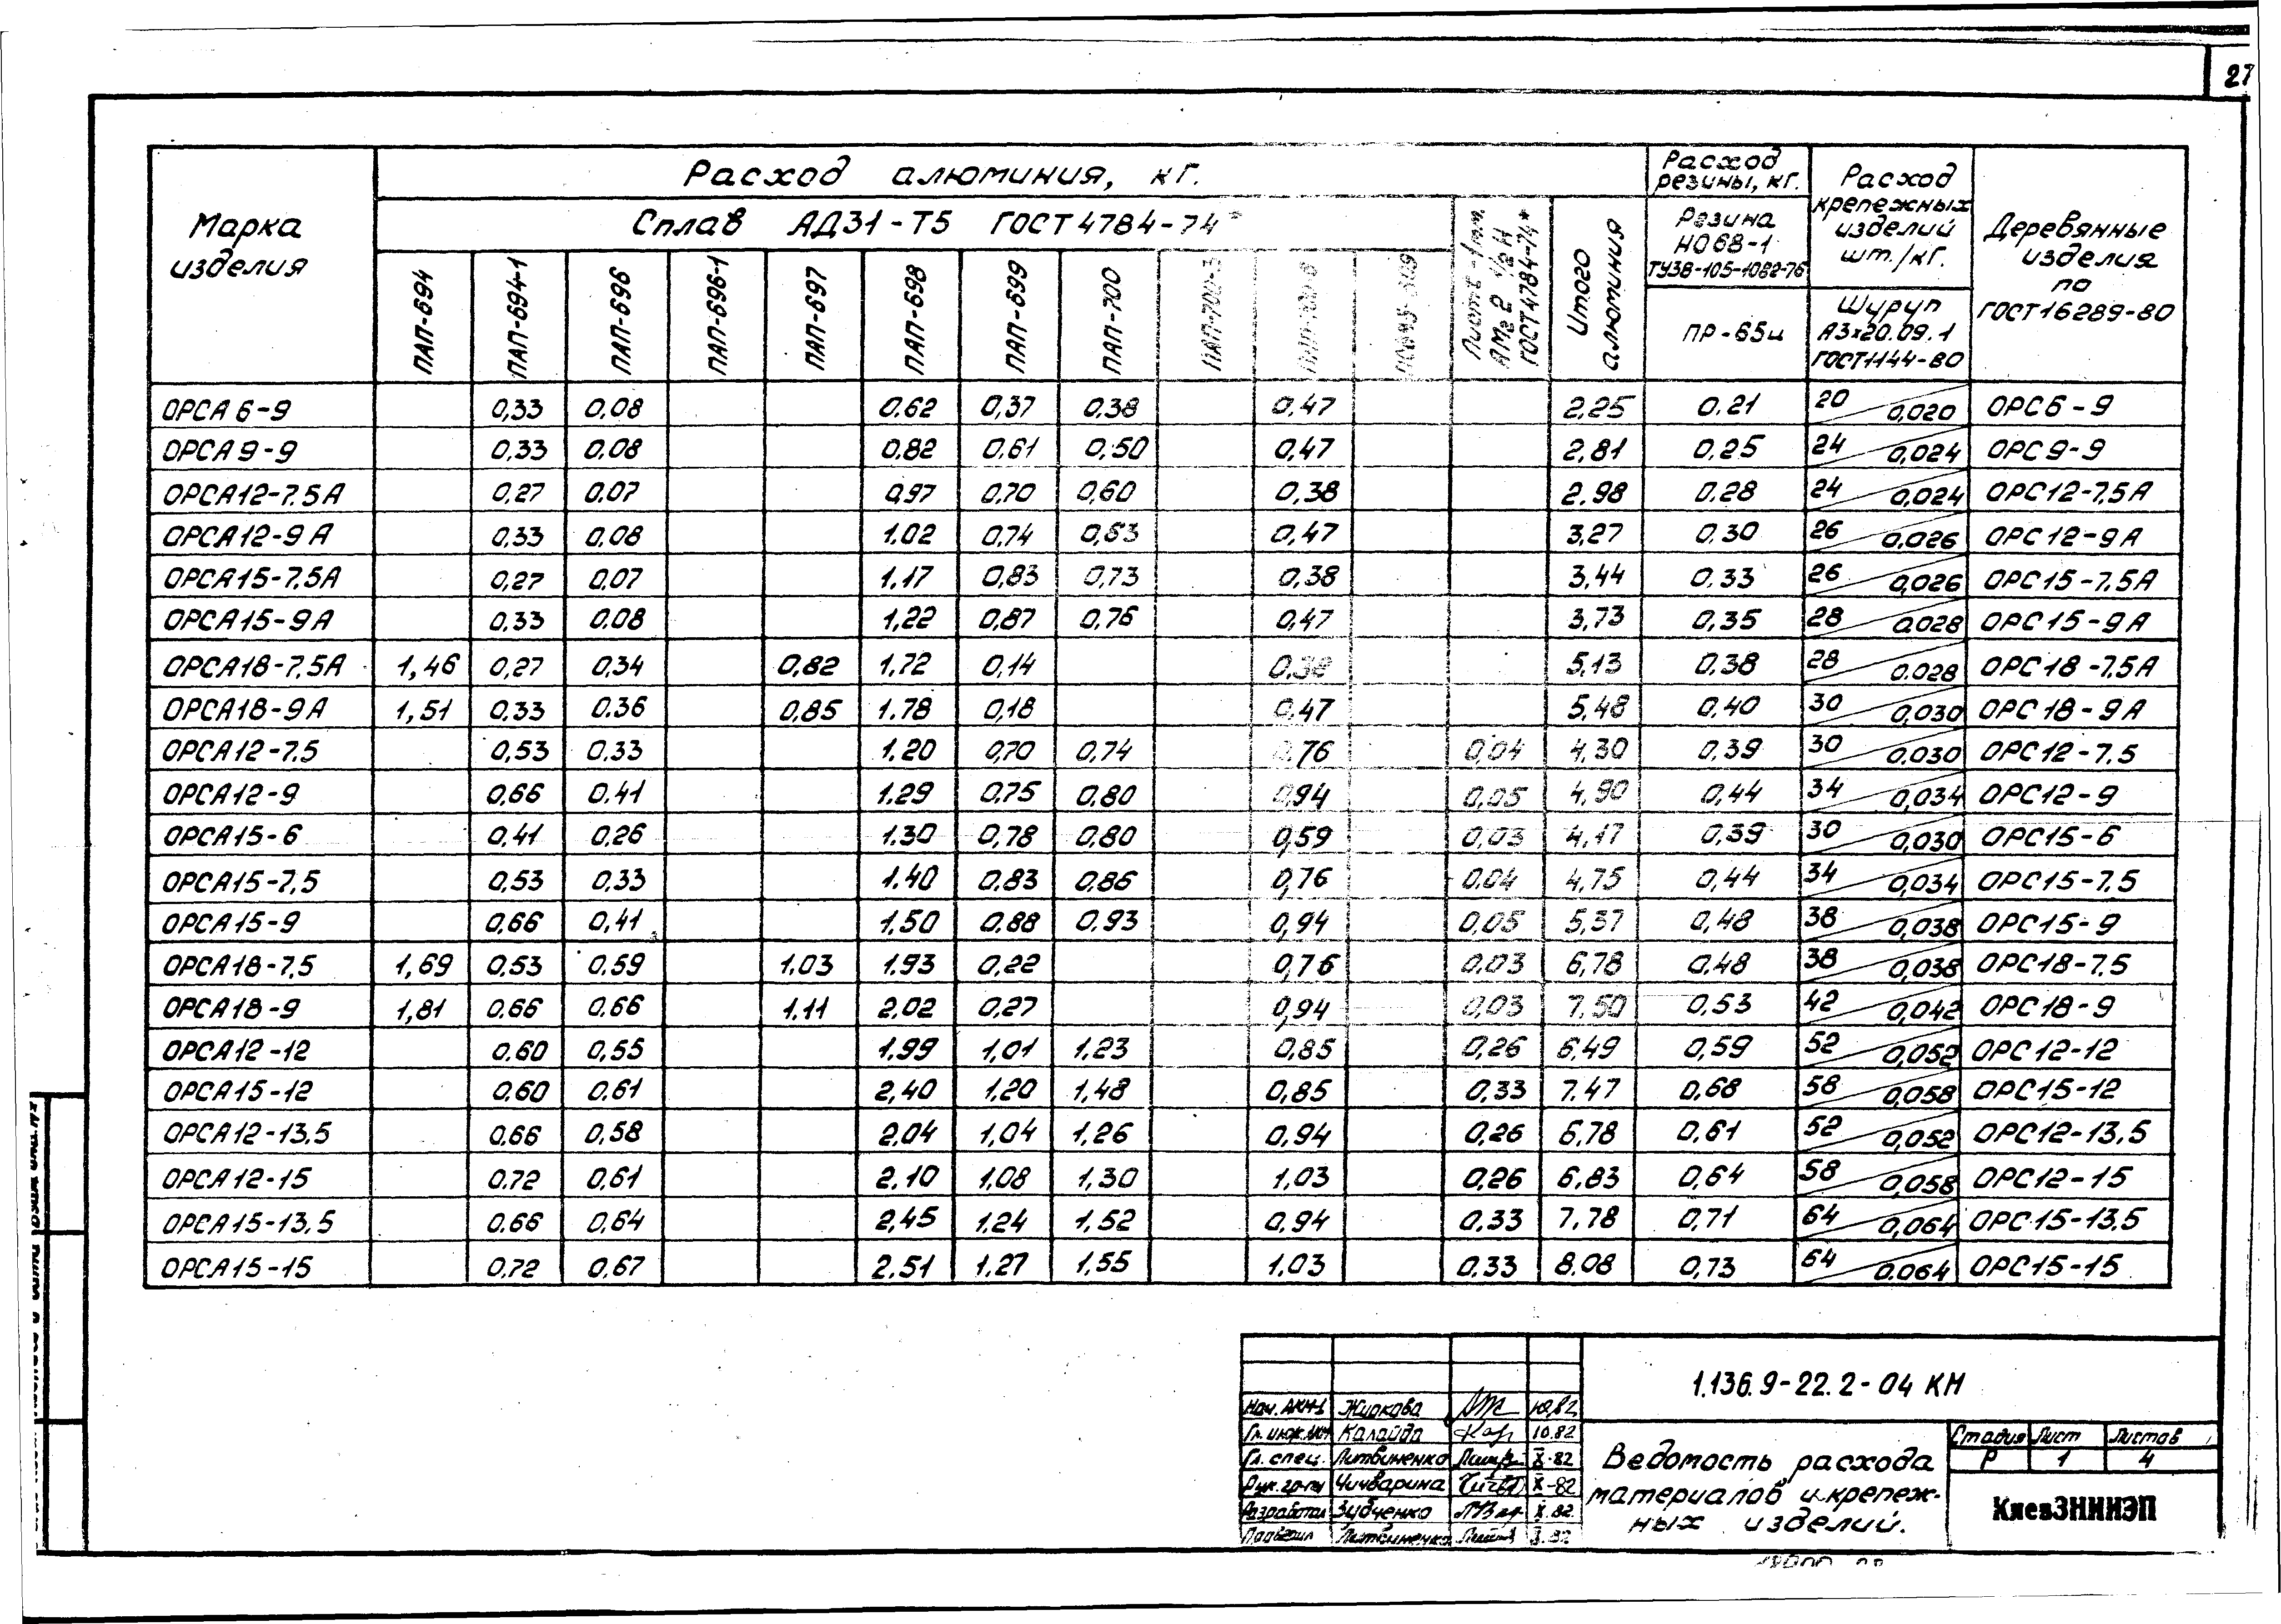 27
Марка изделия
Расход алюминия, кг.
Расход резины, кг.
Расход крепежных изделий шт./кг.
Деревянные изделия по ГОСТ16289-80
Сплав АД31-Т5 ГОСТ4784-74*
Лист АМг2 1/2Н ГОСТ4784-74*
Итого алюминия
Резина НО68-1 ТУ38-105-1082-76
ПАП-694 ПАП-694-1 ПАП-696 ПАП-696-1 ПАП-697 ПАП-698 ПАП-699 ПАП-700 ПАП-700-3
ПР-65и
Шуруп А3х20.09.1 ГОСТ1144-80
ОРСА6-9 0,33 0,08 0,62 0,37 0,38 0,47 2,25 0.21 20 0,020 ОРС6-9
ОРСА9-9 0,33 0,08 0,82 0,61 0,50 0,47 2,81 0,25 24 0,024 ОРС9-9
ОРСА12-7,5А 0,27 0,07 0,97 0,70 0,60 0,38 2.98 0.28 24 0,024 ОРС12-7,5А
ОРСА12-9А 0,33 0,08 1.02 0,74 0,63 0,47 3,27 0.30 26 0,026 ОРС12-9А
ОРСА15-7,5А 0,27 0,07 1,17 0,83 0,73 0,38 3,44 0.33 26 0,026 ОРС15-7,5А
ОРСА15-9А 0,33 0,08 1,22 0,87 0,76 0,47 3,73 0,35 28 0,028 ОРС15-9А
ОРСА18-7,5А 1,46 0,27 0,34 0,82 1.72 0,14 0,38 5,13 0,38 28 0.028 ОРС18-7,5А
ОРСА18-9А 1,51 0,33 0.36 0,85 1.78 0,18 0,47 5,48 0,40 30 0,030 ОРС18-9А
ОРСА12-7,5 0,53 0.33 1.20 0,70 0,74 0,76 0,04 4,30 0,39 30 0,030 ОРС12-7,5
ОРСА12-9 0,66 0.41 1.29 0,75 0,80 0,94 0,05 4,90 0,44 34 0,034 ОРС12-9
ОРСА15-6 0,41 0,26 1.30 0,78 0,80 0,59 0,03 4,17 0,39 30 0,030 ОРС15-6
ОРСА15-7,5 0,53 0,33 1.40 0,83 0,86 0,76 0,04 4,75 0,44 34 0,034 ОРС15-7,5
ОРСА15-9 0,66 0,41 1,50 0,88 0,93 0,94 0,05 5,37 0,48 38 0,038 ОРС15-9
ОРСА18-7,5 1,69 0,53 0,59 1.03 1.93 0,22 0,76 0,03 6,78 0,48 38 0,038 ОРС18-7,5
ОРСА18-9 1,81 0,66 0,66 1.11 2,02 0,27 0,94 0,03 7,50 0,53 42 0,042 ОРС18-9
ОРСА12-12 0.60 0,55 1.99 1,01 1.23 0,85 0,26 6.49 0,59 52 0,052 ОРС12-12
ОРСА15-12 0.60 0,61 2,40 1,20 1,48 0,85 0,33 7.47 0,68 58 0,058 ОРС15-12
ОРСА12-13,5 0.66 0,58 2.04 1,04 1,26 0,94 0,26 6,78 0,61 52 0,052 ОРС12-13,5
ОРСА12-15 0.72 0,61 2.10 1.08 1,30 1,03 0,26 6,83 0,64 58 0,058 ОРС12-15
ОРСА15-13,5 0.66 0,64 2,45 1,24 1,52 0,94 0.33 7,78 0,71 64 0,064 ОРС15-13,5
ОРСА15-15 0,72 0,67 2.51 1.27 1.55 1.03 0.33 8.08 0,73 64 0.064 ОРС15-15
1.136.9-22.2-04 КМ
Нач. АКМ-1 Жиркова 10.82
Калайда 10.82
Гл. спец. Литвиненко X-82
Рук. гр-пы Чичварина X-82
Разработал Зубченко X.82
Проверил Литвиненко X.82
Ведомость расхода
материалов и крепеж-
ных изделий.
Стадия Лист Листов
Р 1 4
КиевЗНИИЭП